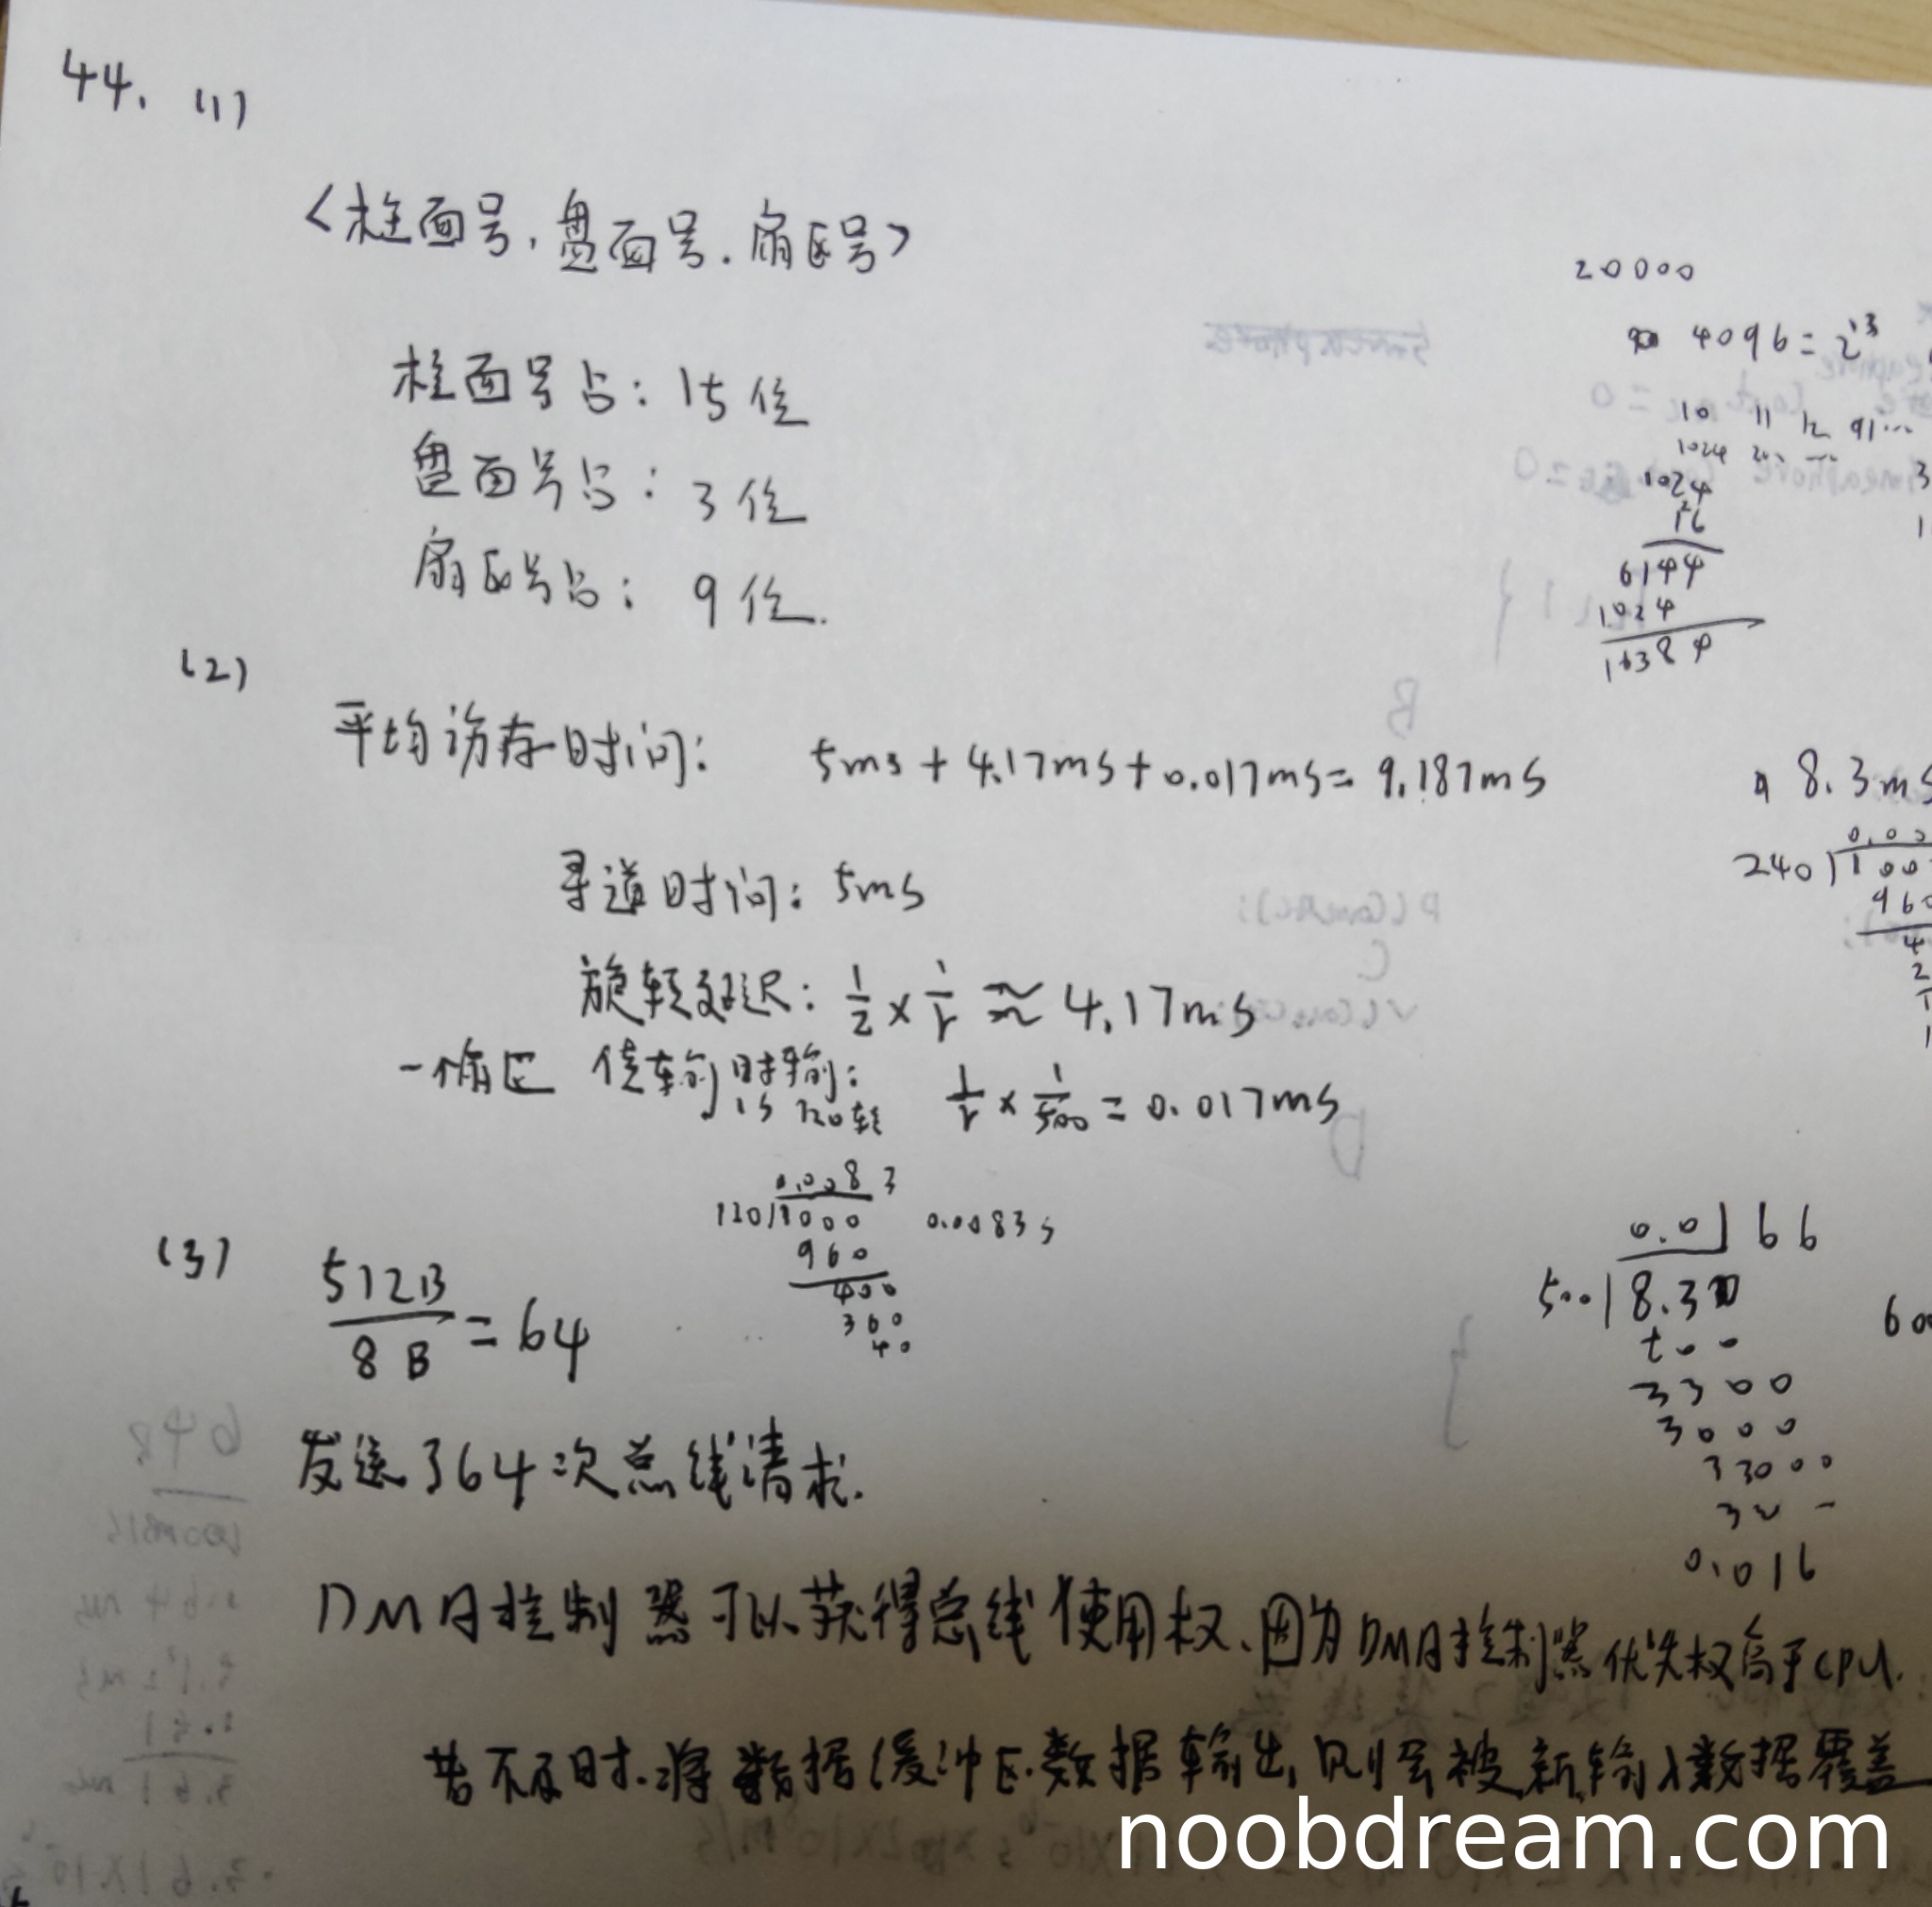 44. (1)
<柱面号, 盘面号. 扇区号>
柱面号占: 15位
盘面号占: 3位
扇区号占: 9位.
(2)
平均访存时间: 5ms + 4.17ms + 0.017ms = 9.187ms
寻道时间: 5ms
旋转延迟: 1/2 × 1/r ≈ 4.17ms
一个扇区 传输时间: 1/r × 1/500 = 0.017ms
1s 120转
0.0083
120)1000 0.0083s
960
400
360
40
(3) 512B/8B = 64
发送了64次总线请求.
DMA控制器可以获得总线使用权、因为DMA控制器优先权高于CPU.
若不及时.将数据缓冲区.数据输出,则会被新输入数据覆盖
20000
4096 = 2^13
10 11 12
1024
1024
16
6144
1024
16384
8.3ms
240)100
960
0.0166
500)8.30
500
3300
3000
33000
0.016
noobdream.com